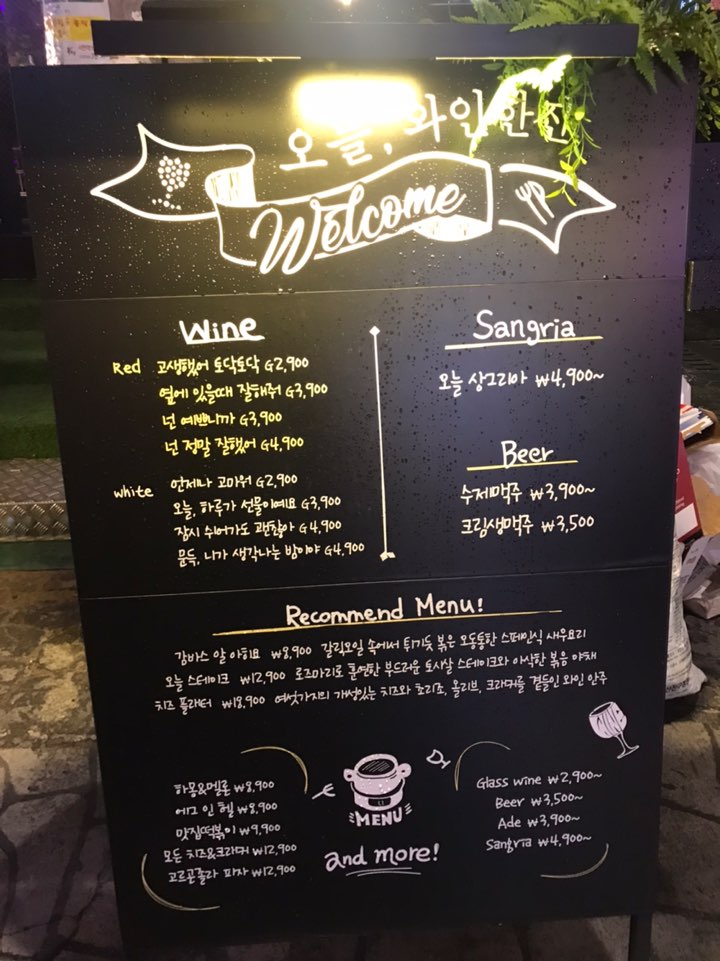 오늘, 와인한잔
Welcome
Wine
Red 고생했어 토닥토닥 G2,900
옆에 있을때 잘해줘 G3,900
넌 예쁘니까 G3,900
넌 정말 잘했어 G4,900
white 언제나 고마워 G2,900
오늘, 하루가 선물이예요 G3,900
잠시 쉬어가도 괜찮아 G4,900
문득, 니가 생각나는 밤이야 G4,900
Sangria
오늘 상그리아 ₩4,900~
Beer
수제맥주 ₩3,900~
크림생맥주 ₩3,500
Recommend Menu!
감바스 알 아히요 ₩8,900 갈릭오일 속에서 튀기듯 볶은 오동통한 스페인식 새우요리
오늘 스테이크 ₩12,900 로즈마리로 훈연한 부드러운 토시살 스테이크와 아삭한 볶음 야채
치즈 플래터 ₩18,900 여섯가지의 개성있는 치즈와 초리조, 올리브, 크래커를 곁들인 와인 안주
하몽&메론 ₩8,900
에그 인 헬 ₩8,900
맛집떡볶이 ₩9,900
모든 치즈&크래커 ₩12,900
고르곤졸라 피자 ₩12,900
MENU
and more!
Glass wine ₩2,900~
Beer ₩3,500~
Ade ₩3,900~
Sangria ₩4,900~